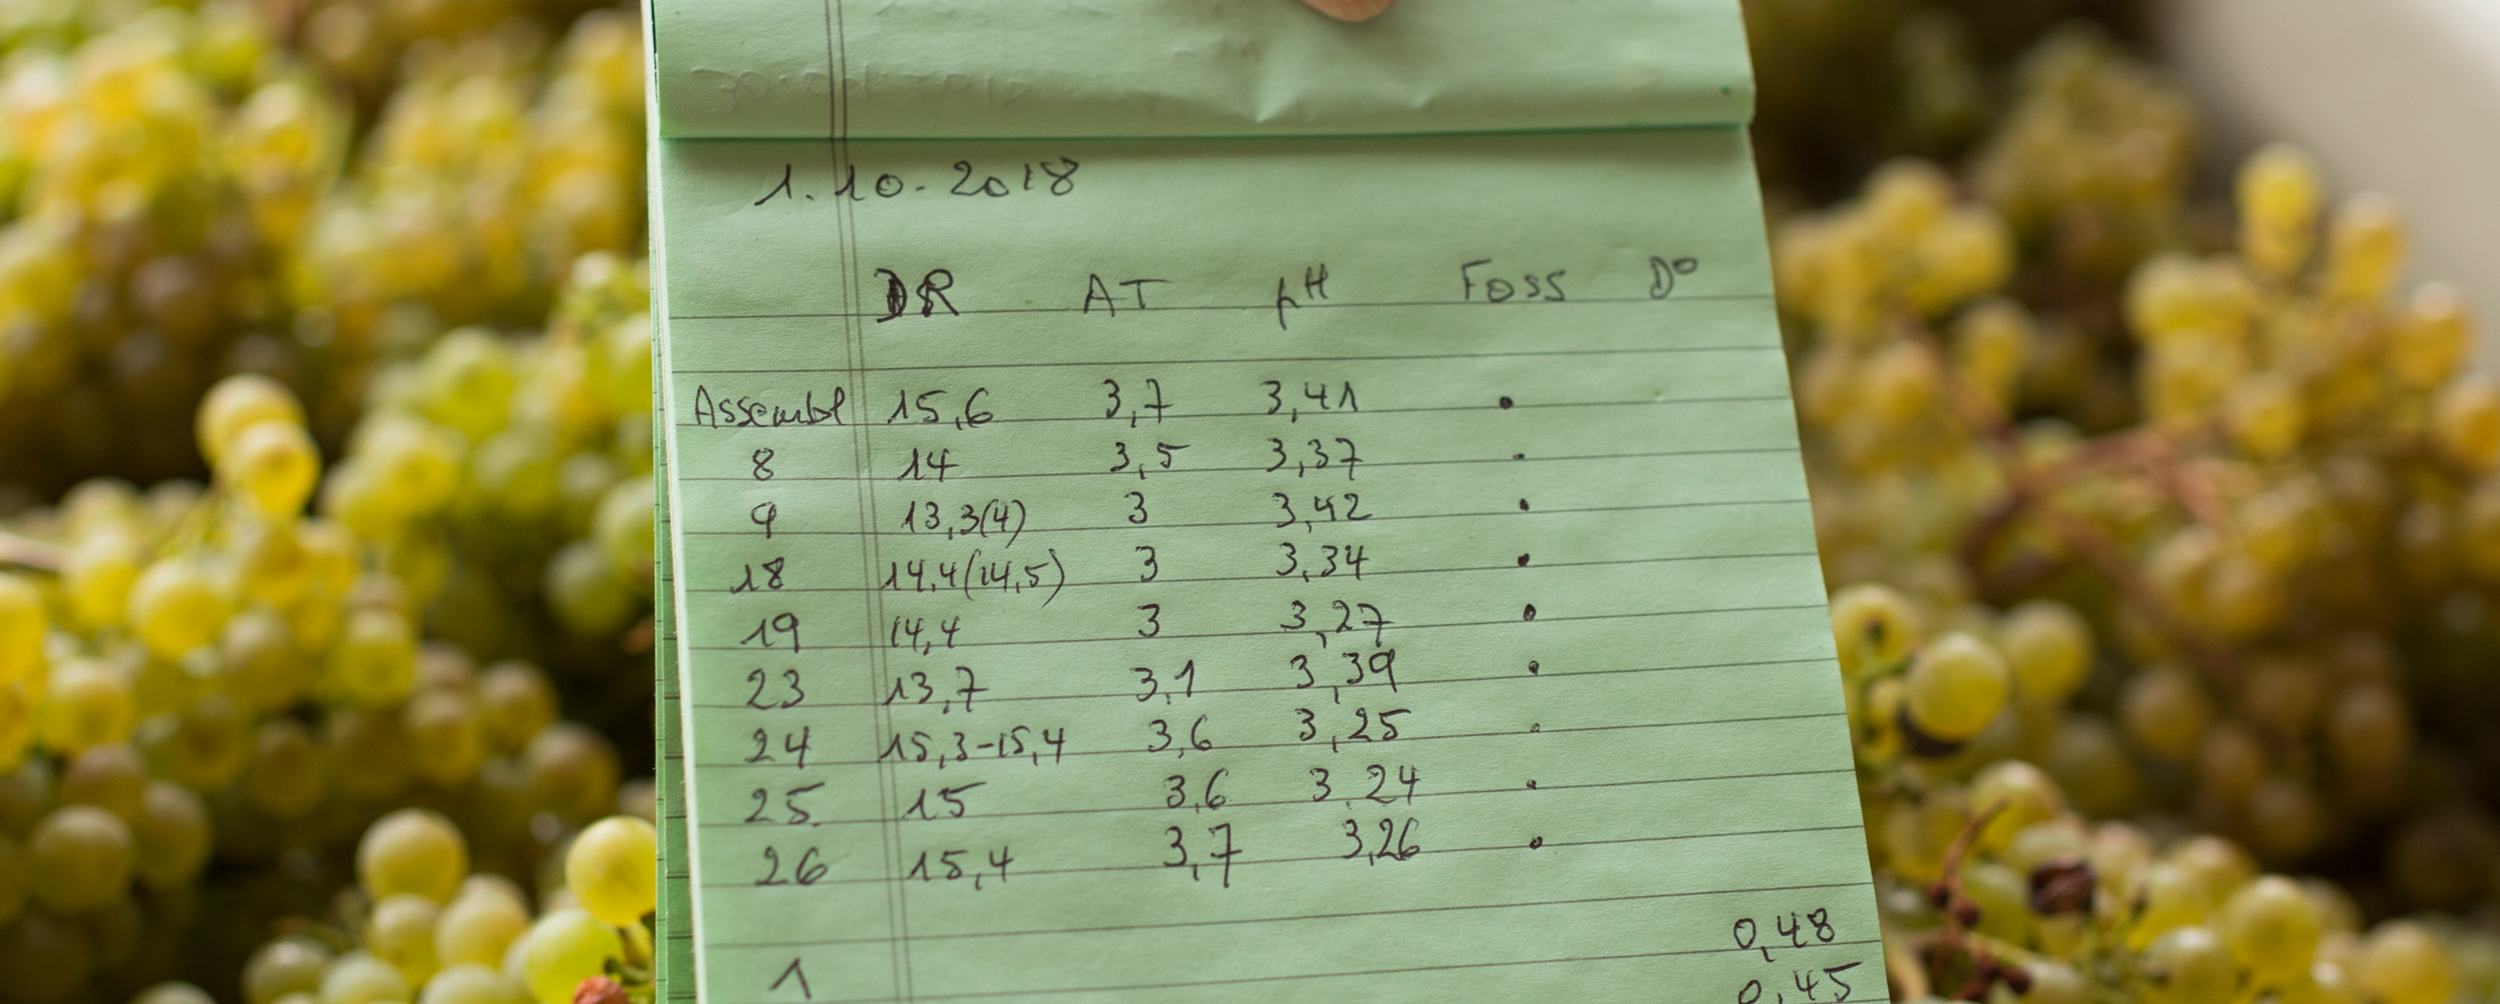 1.10.2018
DR AT pH Foss D°
Assembl 15,6 3,7 3,41 •
8 14 3,5 3,37 •
9 13,3(4) 3 3,42 •
18 14,4(14,5) 3 3,34 •
19 14,4 3 3,27 •
23 13,7 3,1 3,39 •
24 15,3-15,4 3,6 3,25 •
25. 15 3,6 3,24 •
26 15,4 3,7 3,26 •
0,48
1 0,45